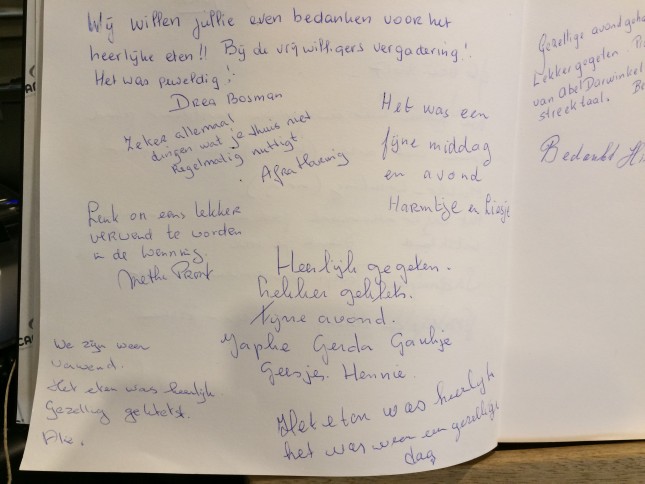 Wij willen jullie even bedanken voor het
heerlijke eten!! Bij de vrijwilligers vergadering!
Het was geweldig!
Drea Bosman
Zeker allemaal
dingen wat je thuis niet
regelmatig nuttigt.
Het was een
fijne middag
en avond
Harmtje en Liesje
Leuk om eens lekker
verwend te worden
in de Wenning.
Heerlijk gegeten.
Lekker geklets.
Fijne avond.
Gerda
Geesjes. Hennie.
We zijn weer
verwend.
Het eten was heerlijk
Gezellig gekletst.
Het eten was heerlijk
het was weer een gezellige
dag
Gezellige avond
Lekker gegeten.
van Abel Darwinkel
streektaal.
Bedankt